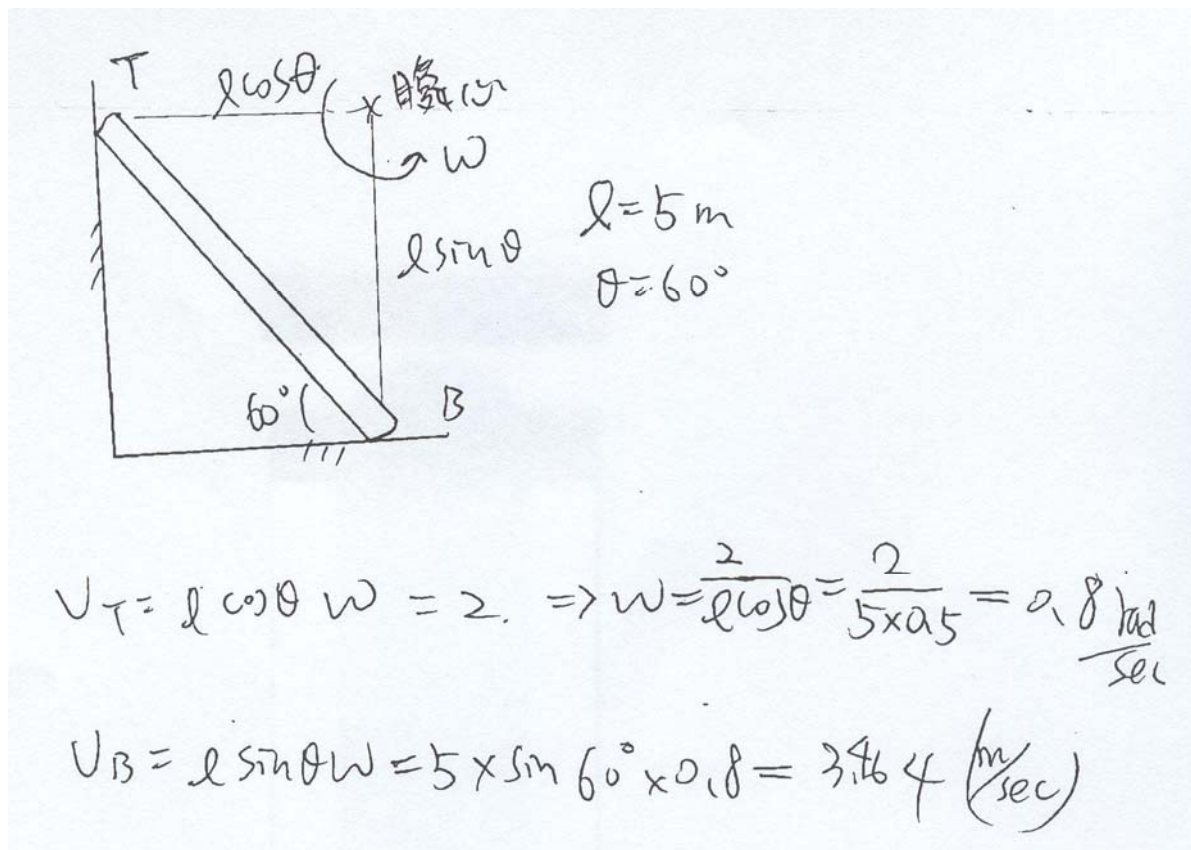 T
lcosθ
瞬心
W
l=5m
lsinθ
θ=60°
60°
B
V_T= l cosθ W = 2. => W= 2/lcosθ = 2/5×0.5 = 0.8 rad/sec
V_B= l sinθW=5×sin60°×0.8= 3.464 (m/sec)